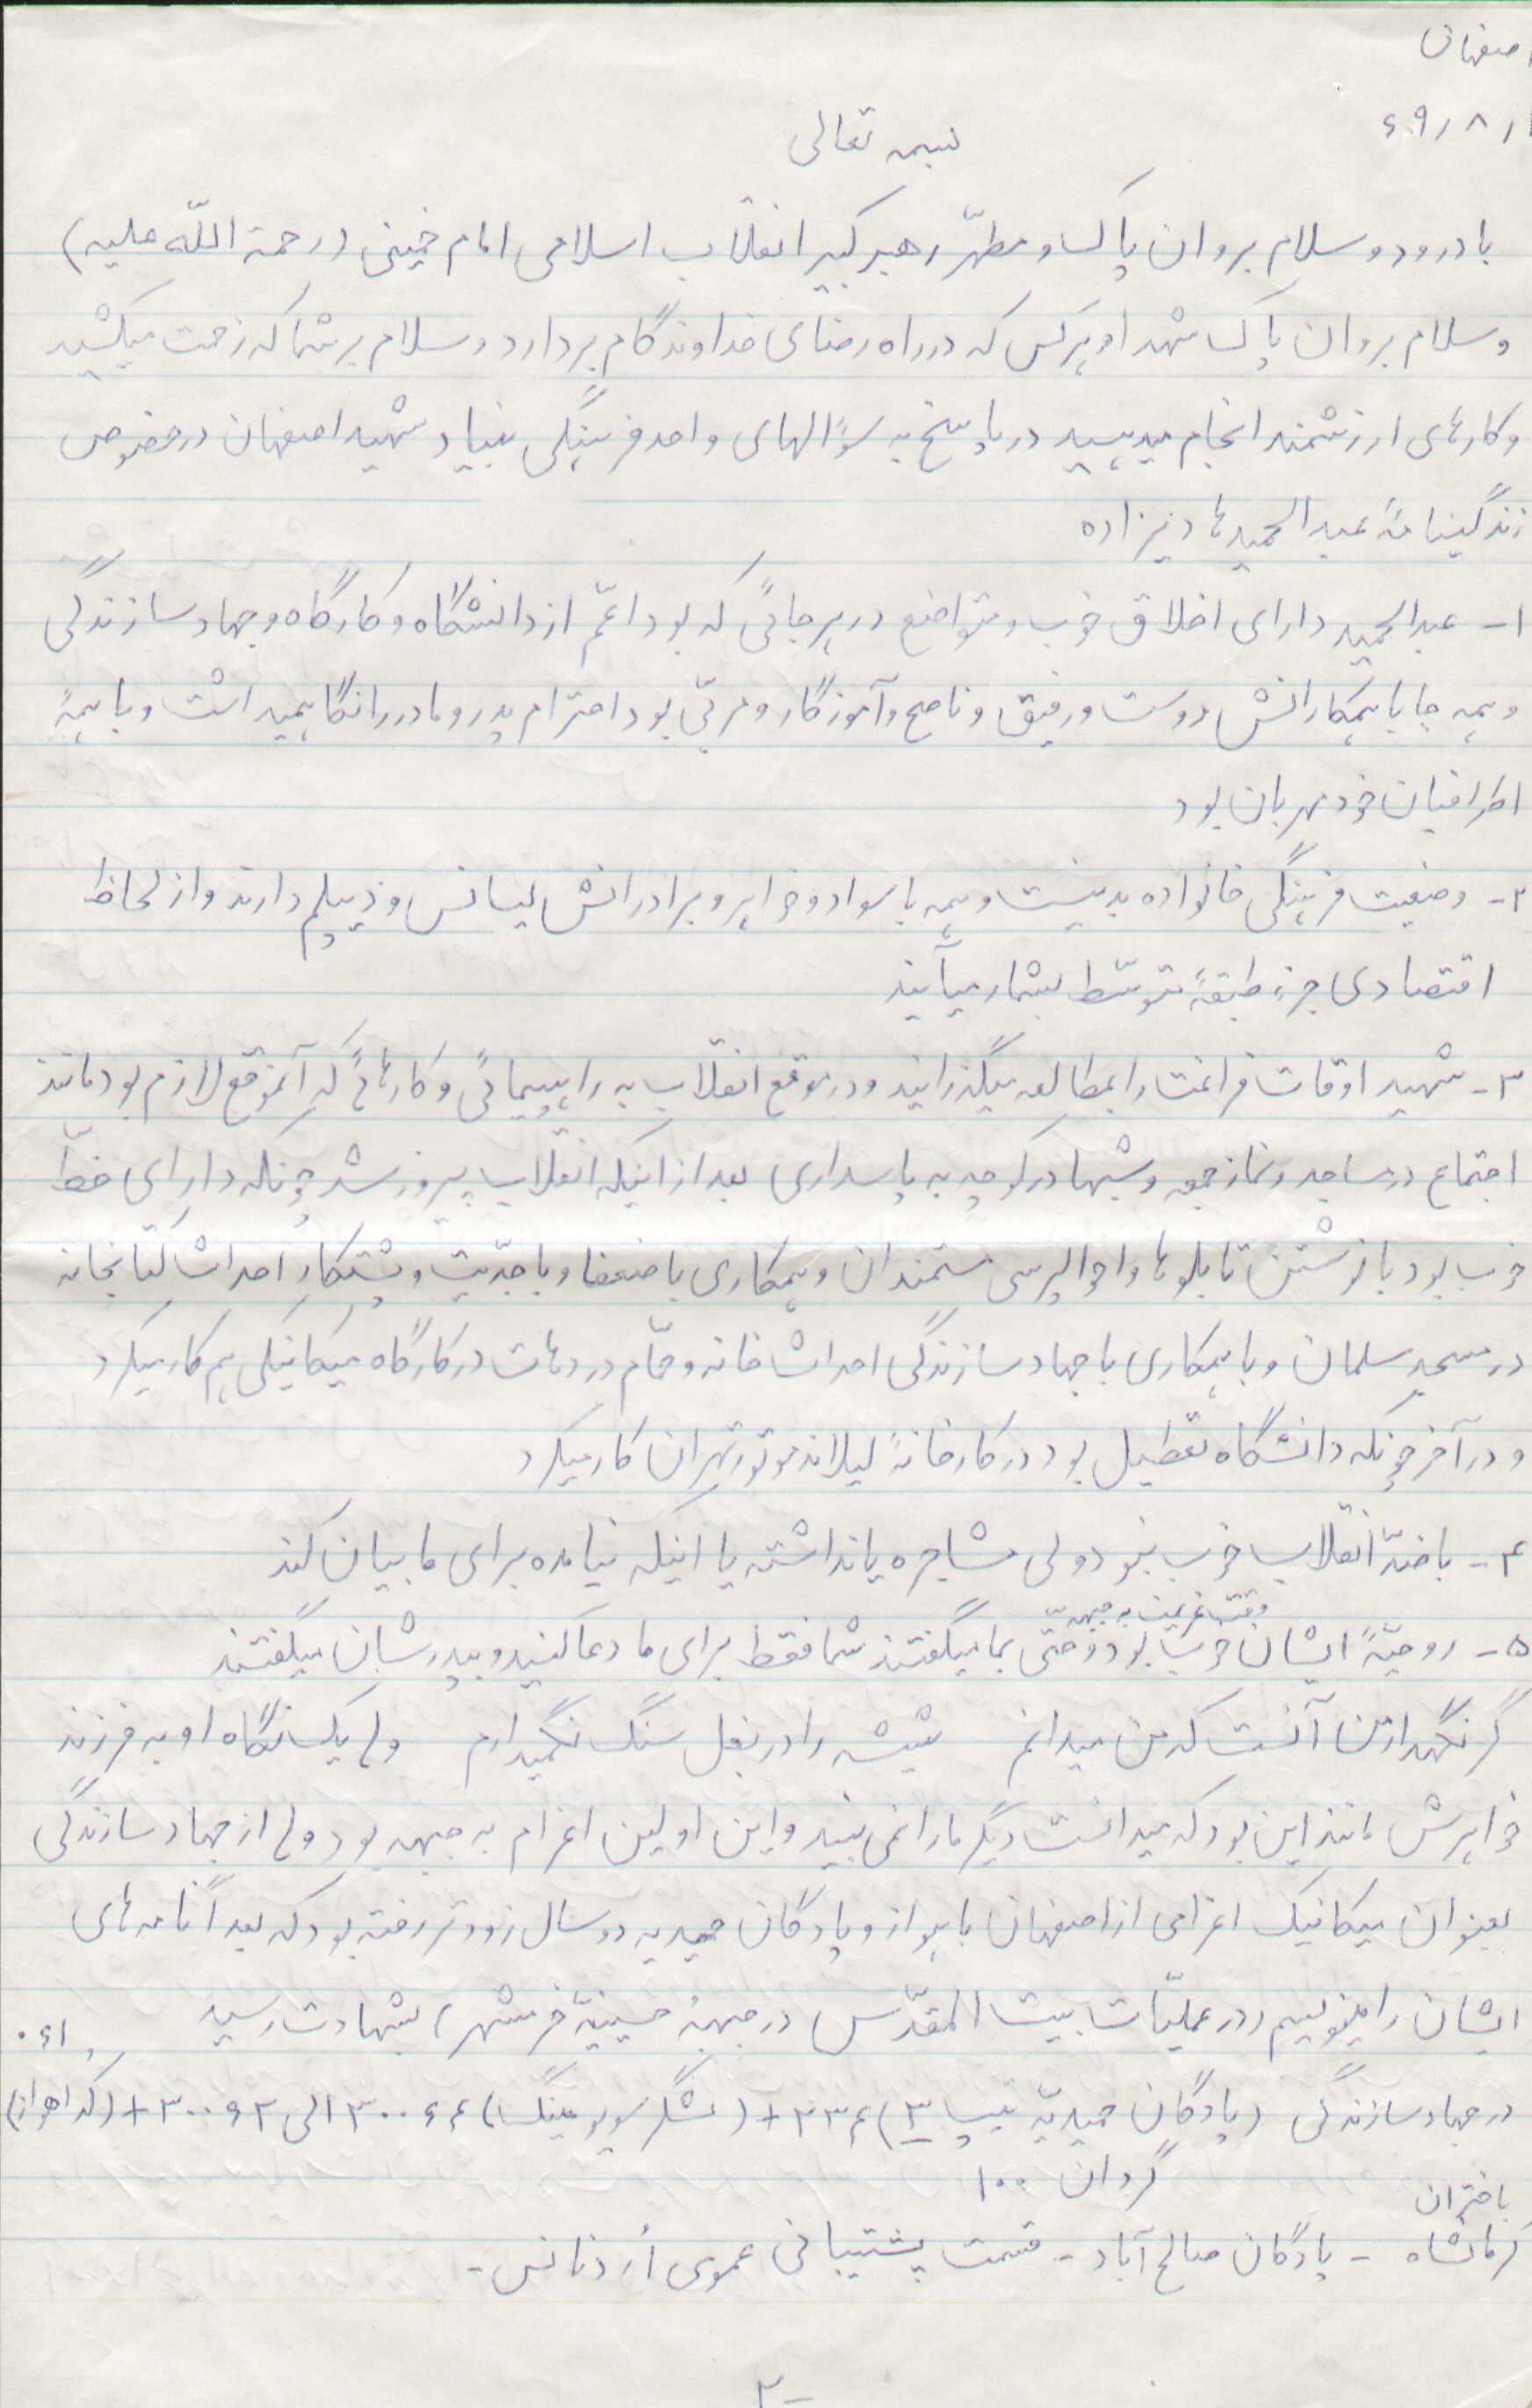 اصفهان
۶۹/۸/۱
بسمه تعالی
با درود و سلام بروان پاک و مطهّر رهبر کبیر انقلاب اسلامی امام خمینی (رحمة اللّه علیه)
و سلام بروان پاک شهدا و هرکس که در راه رضای خداوند گام بردارد و سلام بر شما که زحمت میکشید
و کارهای ارزشمند انجام میدهید در پاسخ به سؤالهای واحد فرهنگی بنیاد شهید اصفهان در خصوص
زندگینامهٔ عبدالحمید هادیزاده
۱- عبدالحمید دارای اخلاق خوب و متواضع در هر جائی که بود اعمّ از دانشگاه و کارگاه و جهاد سازندگی
و همه جا با همکارانش دوست و رفیق و ناصح و آموزگار و مربّی بود احترام پدر و مادر را نگاهمیداشت و با همهٔ
اطرافیان خود مهربان بود
۲- وضعیت فرهنگی خانواده بد نیست و همه با سواد و خواهر و برادرانش لیسانس و دیپلم دارند و از لحاظ
اقتصادی جزء طبقهٔ متوسّط بشمار میآیند
۳- شهید اوقات فراغت را بمطالعه میگذرانید و در موقع انقلاب به راهپیمائی و کارهائی که آنموقع لازم بود مانند
اجتماع در مساجد و نماز جمعه و شبها در کوچه به پاسداری بعد از اینکه انقلاب پیروز شد چونکه دارای خطّ
خوب بود با نوشتن تابلوها و احوالپرسی مستمندان و همکاری با ضعفا و با جدّیت و پشتکار احداث کتابخانه
در مسجد سلمان و با همکاری با جهاد سازندگی احداث خانه و حمّام در دهات در کارگاه میکانیکی هم کار میکرد
و در آخر چونکه دانشگاه تعطیل بود در کارخانهٔ لیلاند موتور تهران کار میکرد
۴- با ضدّ انقلاب خوب نبود ولی مشاجره یا نداشته یا اینکه نیامده برای ما بیان کند
وقت عزیمت به جبهه
۵- روحیّهٔ ایشان خوب بود و حتّی بما میگفتند شما فقط برای ما دعا کنید و بپدرشان میگفتند
گر نگهدار من آنست که من میدانم شیشه را در بغل سنگ نگهمیدارم ولی یک نگاه او به فرزند
خواهرش مانند این بود که میدانست دیگر ما را نمی بیند و این اولین اعزام به جبهه بود ولی از جهاد سازندگی
بعنوان میکانیک اعزامی از اصفهان باهواز و پادگان حمیدیه دو سال زودتر رفته بود که بعداً نامه های
ایشان را مینویسم (در عملیّات بیت المقدّس در جبههٔ حسینیّهٔ خرمشهر) بشهادت رسید ۰۶۱
در جهاد سازندگی (پادگان حمیدیّه تیپ ۳) ۳۳۴+ (لشگر ) ۳۰۰۶۴ الی ۳۰۰۶۲+ (کد اهواز)
گردان ۱۰۰
باختران
کرمانشاه - پادگان صالح آباد - قسمت پشتیبانی عمومی اُردنانس -
۲-